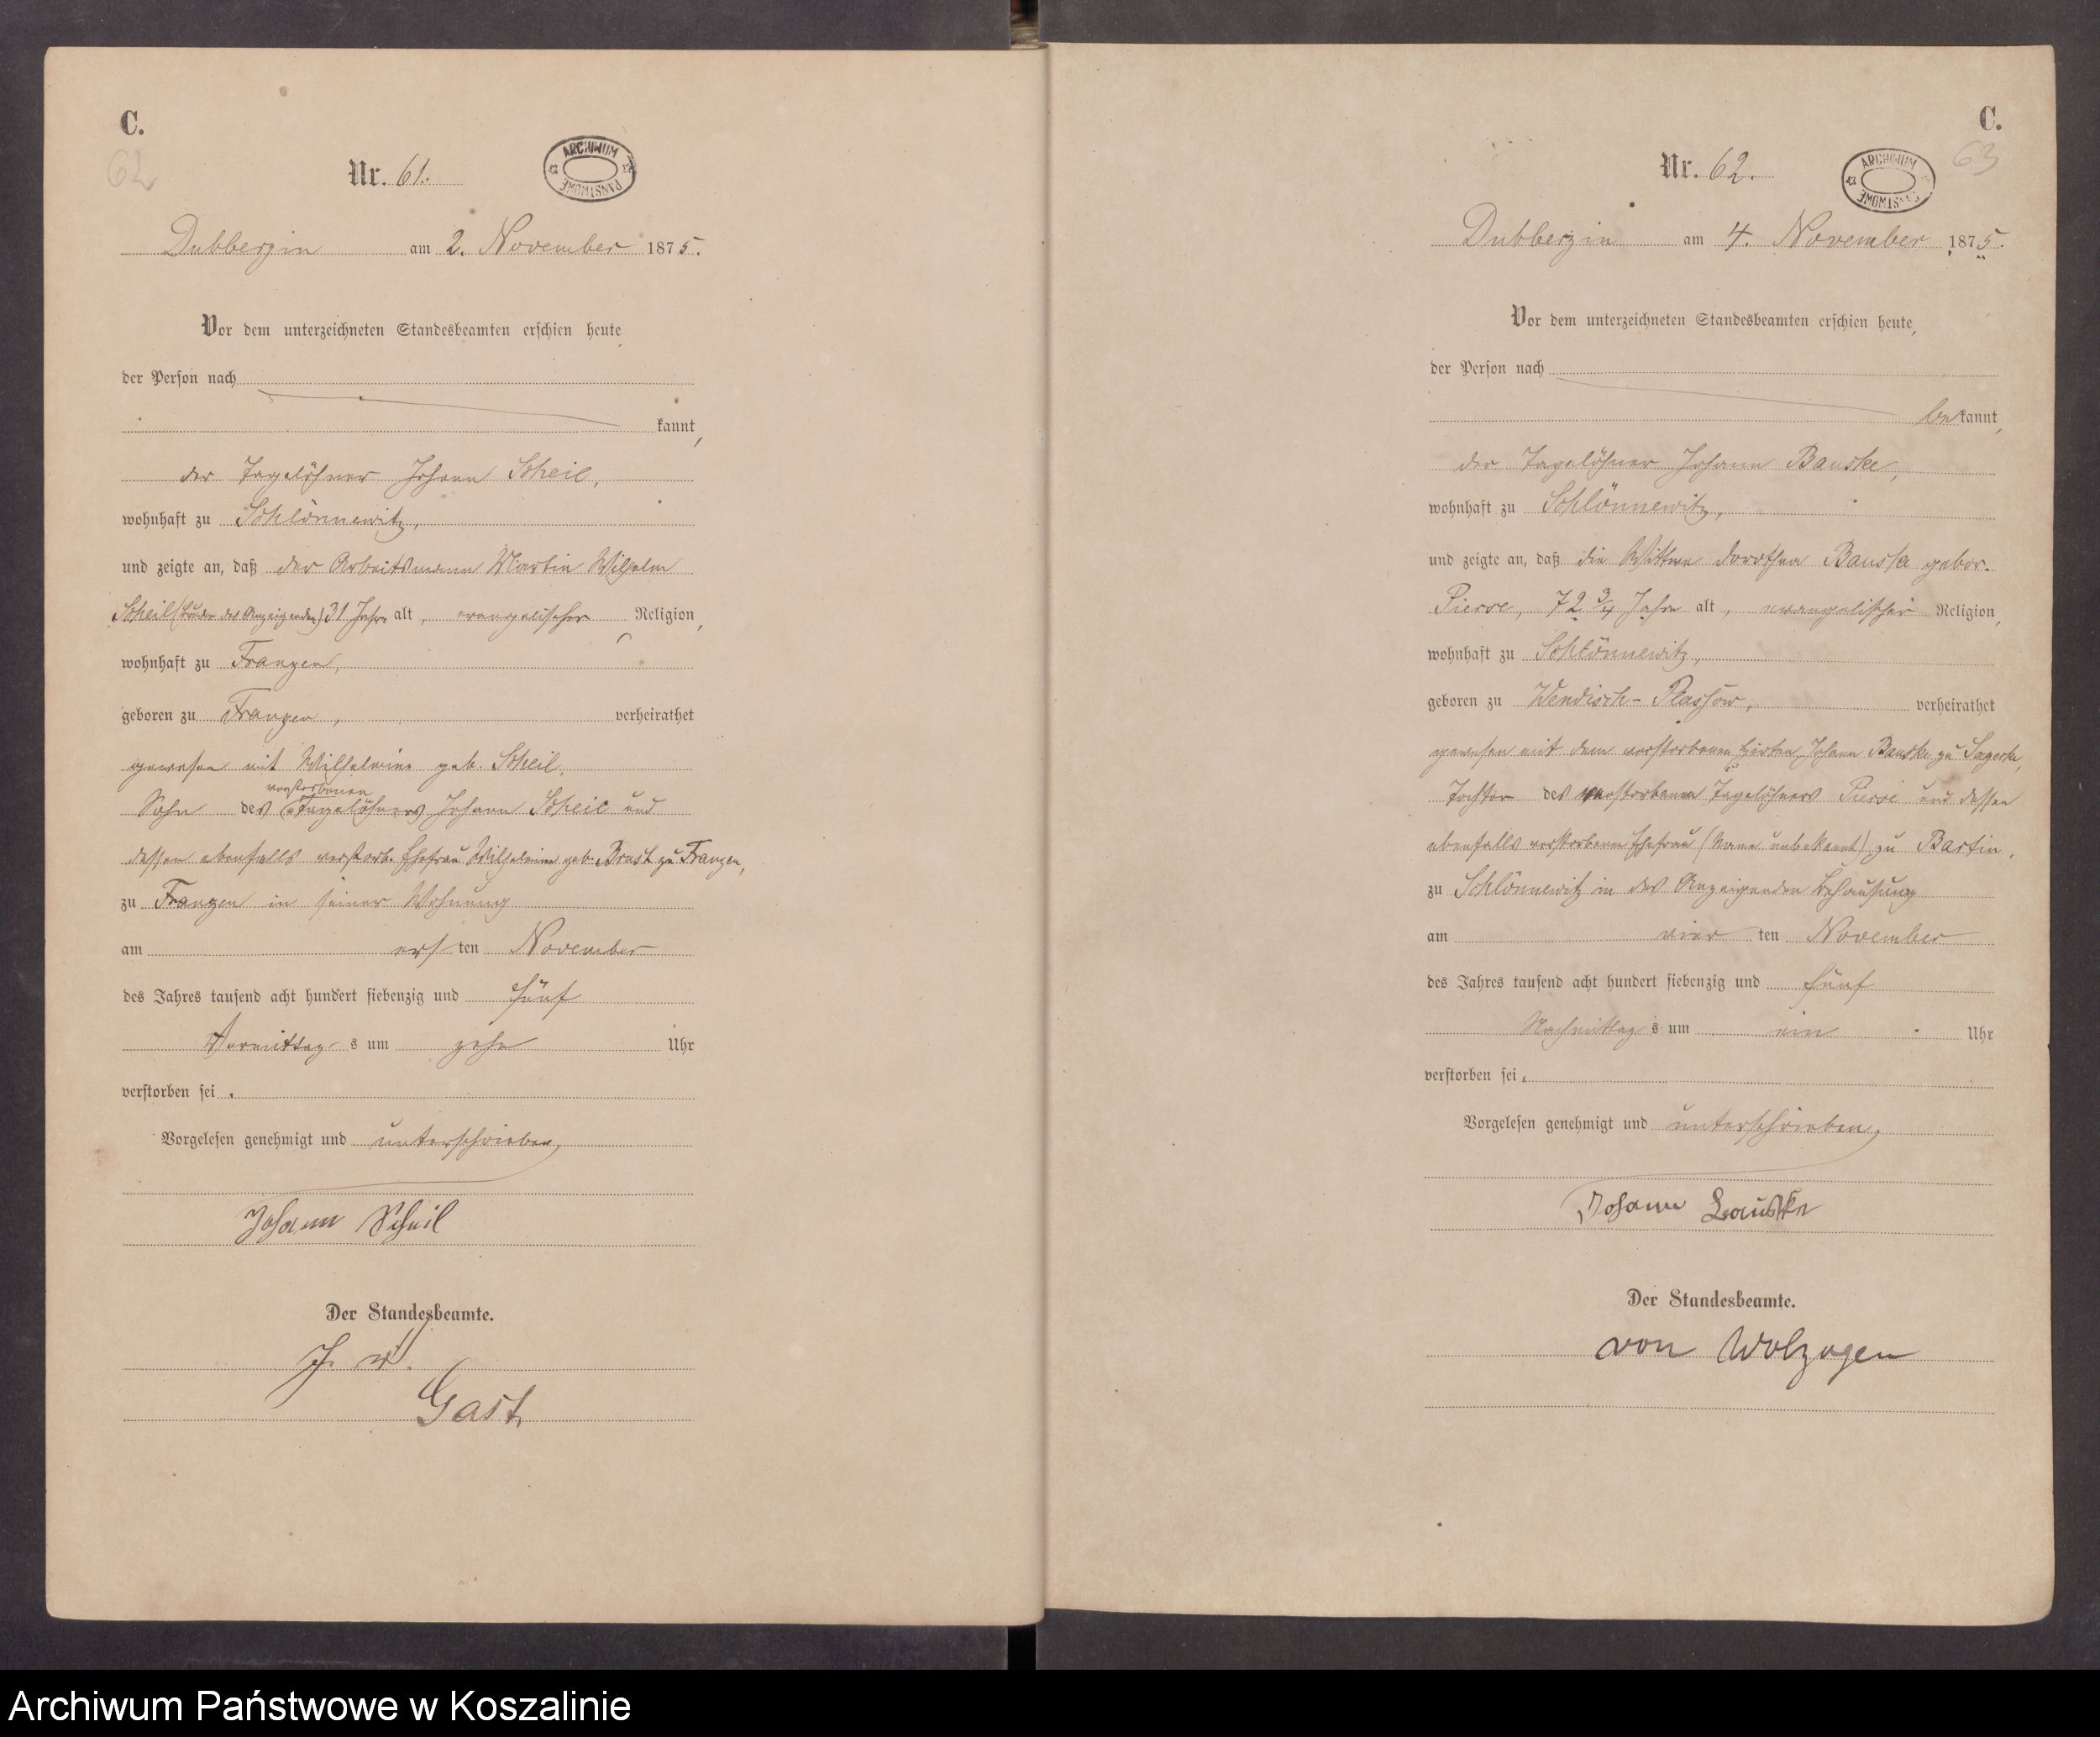 C.
62
Nr. 61.
ARCHIWUM PAŃSTWOWE
Dubberzin am 2. November 1875.
Vor dem unterzeichneten Standesbeamten erschien heute,
der Person nach
kannt,
der Tagelöhner Johann Scheil,
wohnhaft zu Schlönnewitz,
und zeigte an, daß der Arbeitsmann Martin Wilhelm
Scheil (Bruder des Anzeigenden) 31 Jahre alt, evangelischer Religion,
wohnhaft zu Franzen,
geboren zu Franzen, verheirathet
gewesen mit Wilhelmine geb. Scheil,
verstorbenen
Sohn des Tagelöhners Johann Scheil und
dessen ebenfalls verstorb. Ehefrau Wilhelmine geb. Brust zu Franzen,
zu Franzen in seiner Wohnung
am ersten November
des Jahres tausend acht hundert siebenzig und fünf
Vormittags um zehn Uhr
verstorben sei.
Vorgelesen genehmigt und unterschrieben,
Johann Scheil
Der Standesbeamte.
J. V.
Gast
C.
63
Nr. 62.
ARCHIWUM PAŃSTWOWE
Dubberzin am 4. November 1875.
Vor dem unterzeichneten Standesbeamten erschien heute,
der Person nach
bekannt,
der Tagelöhner Johann Bauske,
wohnhaft zu Schlönnewitz,
und zeigte an, daß die Wittwe Dorothea Bauske gebor.
Pierse, 72 3/4 Jahre alt, evangelischer Religion,
wohnhaft zu Schlönnewitz,
geboren zu Wendisch-Plassow, verheirathet
gewesen mit dem verstorbenen Hirten Johann Bauske zu Sagerke,
Tochter des verstorbenen Tagelöhners Pierse und dessen
ebenfalls verstorbenen Ehefrau (Name unbekannt) zu Bartin,
zu Schlönnewitz in des Anzeigenden Behausung
am vierten November
des Jahres tausend acht hundert siebenzig und fünf
Nachmittags um ein Uhr
verstorben sei.
Vorgelesen genehmigt und unterschrieben,
Johann Bauske
Der Standesbeamte.
von Wolzogen
Archiwum Państwowe w Koszalinie